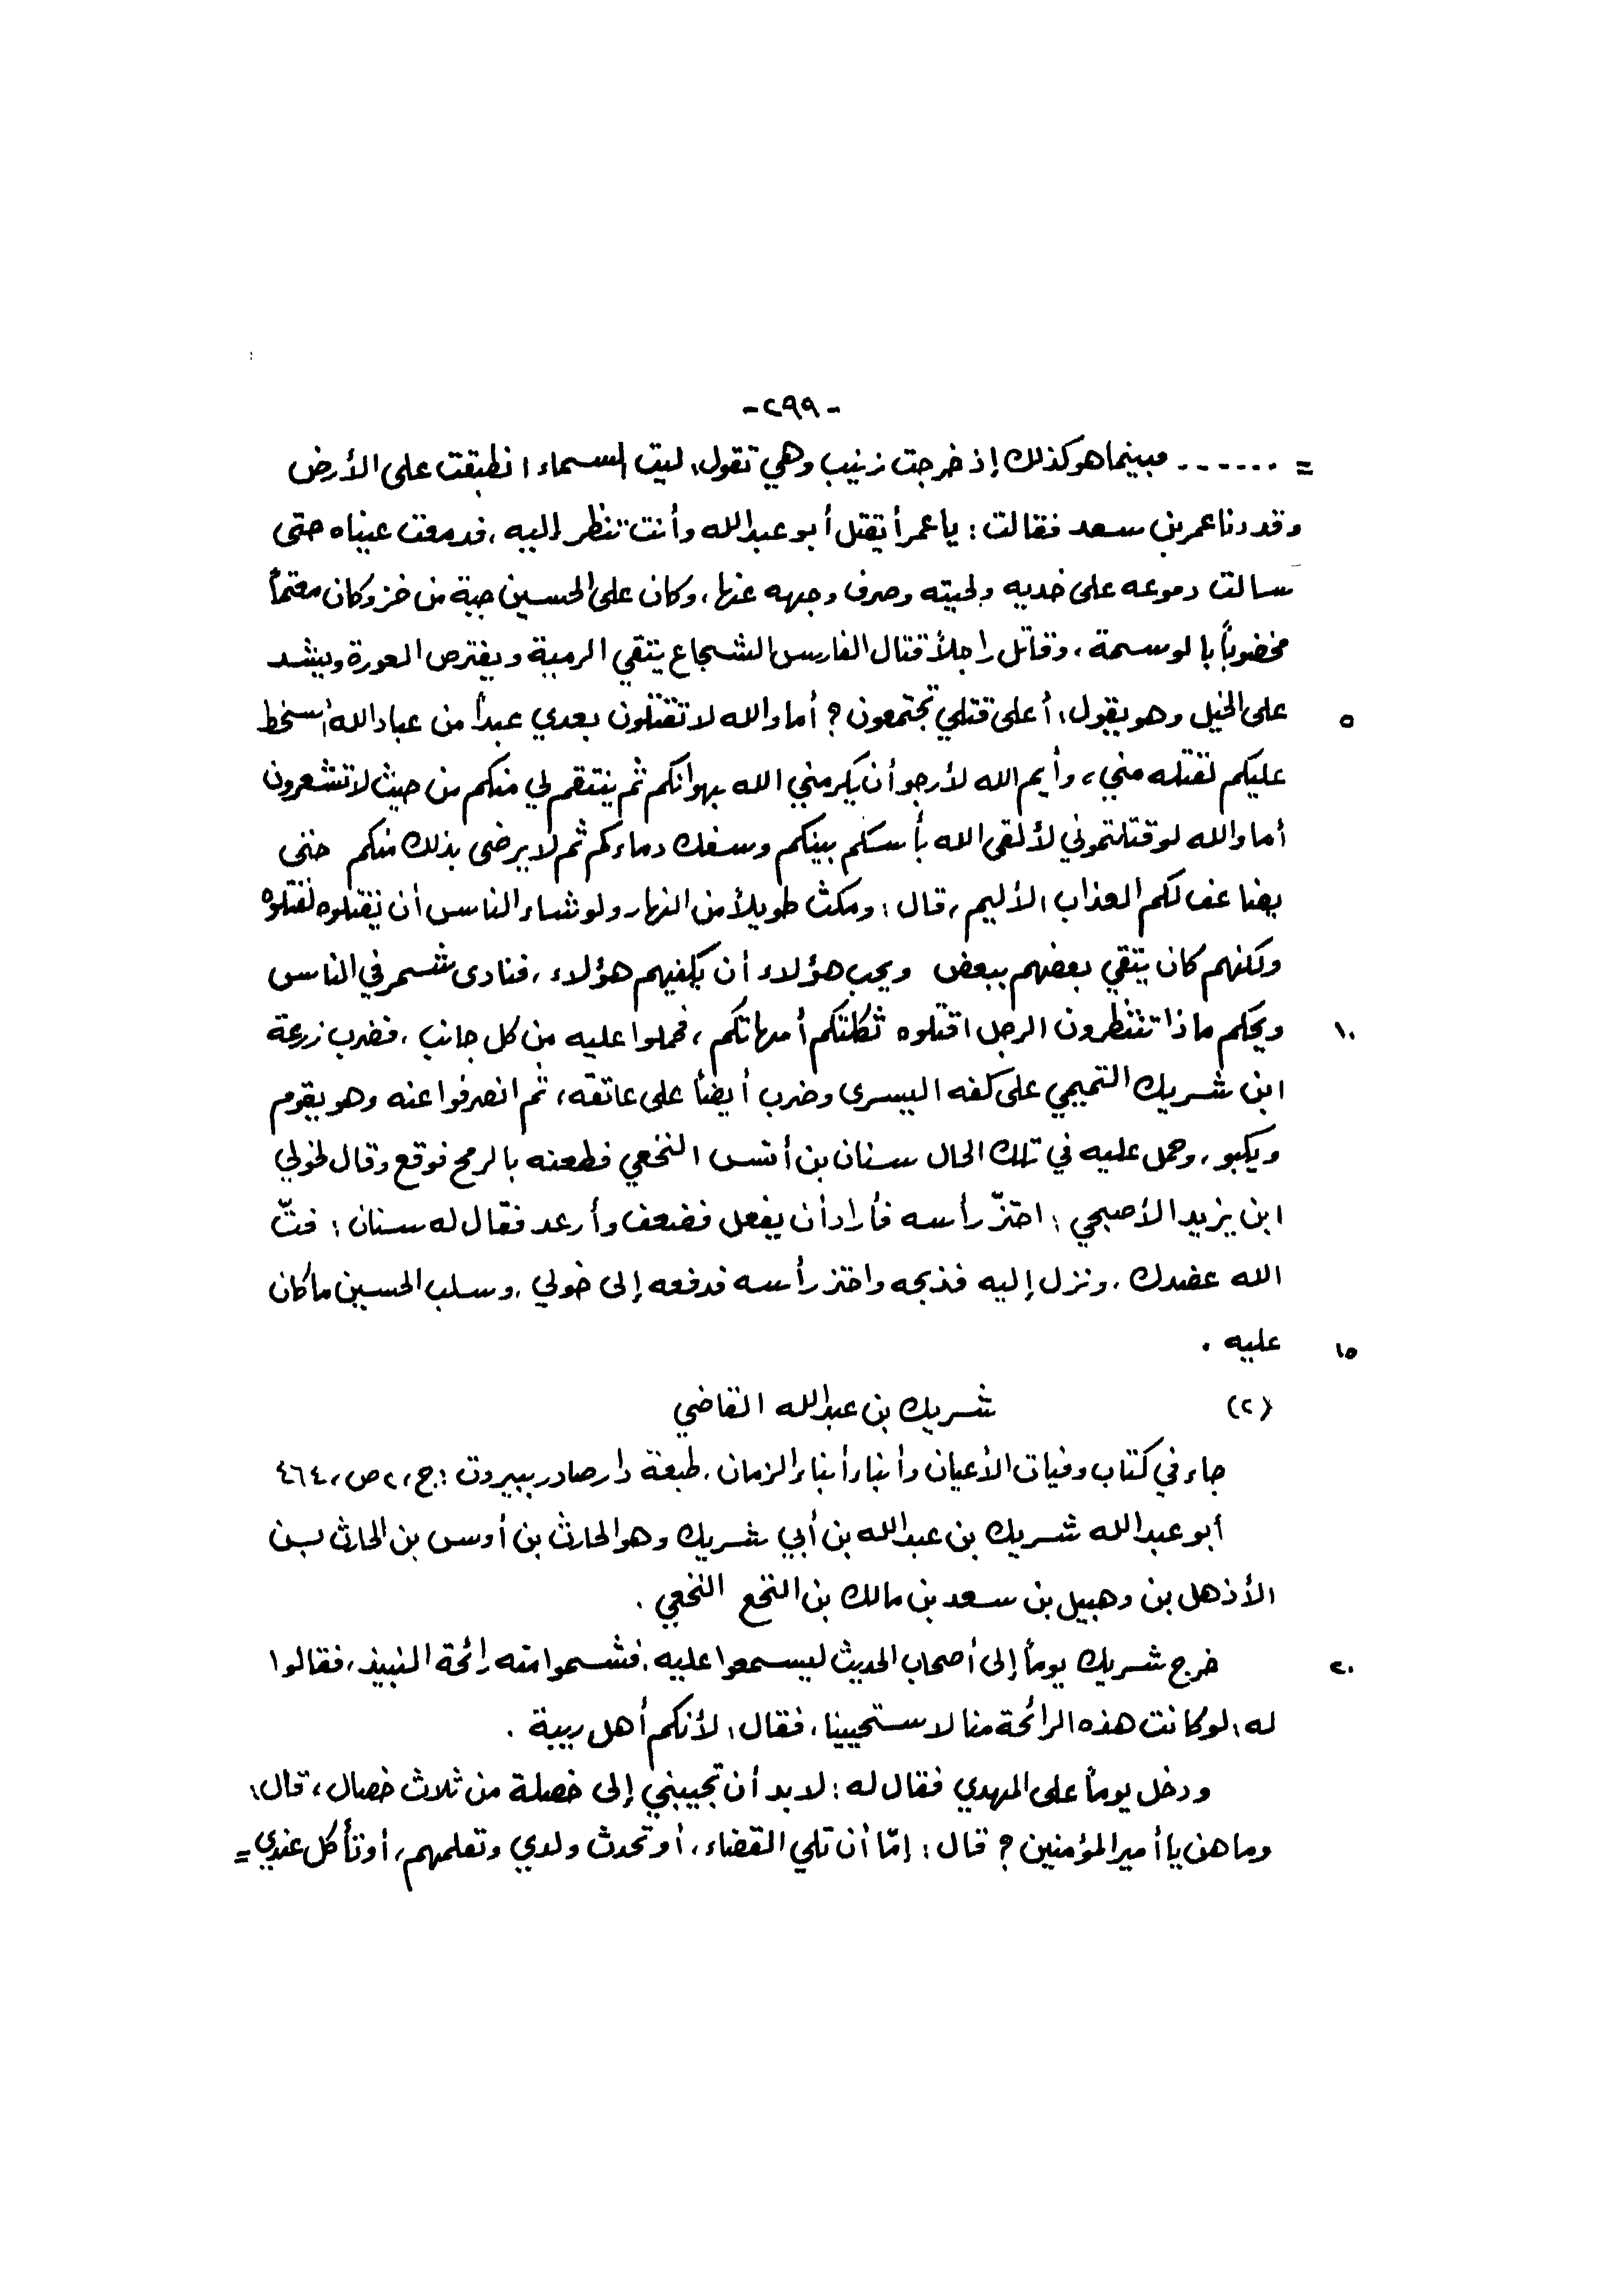 -٢٩٩-
= ....... مبينما هو كذلك إذ خرجت زينب وهي تقول: ليت السماء انطبقت على الأرض
وقد دنا عمر بن سعد فقالت: يا عمر أيقتل أبو عبد الله وأنت تنظر إليه، فدمعت عيناه حتى
سالت دموعه على خديه ولحيته وصرف وجهه عنها، وكان على الحسين جبة من خز وكان معتماً
مخضوباً بالوسمة، وقاتل راجلاً قتال الفارس الشجاع يتقي الرمية ويفترص العورة ويشد
٥ على الخيل وهو يقول: أعلى قتلي تجتمعون؟ أما والله لا تقتلون بعدي عبداً من عباد الله أسخط
عليكم لقتله مني، وأيم الله لأرجو أن يكرمني الله بهوانكم ثم ينتقم لي منكم من حيث لا تشعرون
أما والله لو قتلتموني لألقى الله بأسكم بينكم وسفك دماءكم ثم لا يرضى بذلك منكم حتى
يضاعف لكم العذاب الأليم، قال: ومكث طويلاً من النهار ولو شاء الناس أن يقتلوه لقتلوه
ولكنهم كان يتقي بعضهم ببعض ويحب هؤلاء أن يكفيهم هؤلاء، فنادى شمر في الناس
١٠ ويحكم ماذا تنتظرون الرجل اقتلوه ثكلتكم أمهاتكم، فحملوا عليه من كل جانب، فضرب زرعة
ابن شريك التميمي على كفه اليسرى وضرب أيضاً على عاتقه، ثم انصرفوا عنه وهو يقوم
ويكبو، وحمل عليه في تلك الحال سنان بن أنس النخعي فطعنه بالرمح فوقع وقال لخولي
ابن يزيد الأصبحي: احتزّ رأسه فأراد أن يفعل فضعف وأرعد فقال له سنان: فتّ
الله عضدك، ونزل إليه فذبحه واحتز رأسه فدفعه إلى خولي، وسلب الحسين ما كان
١٥ عليه.
(٢) شريك بن عبد الله القاضي
جاء في كتاب وفيات الأعيان وأنباء أبناء الزمان، طبعة دار صادر ببيروت: ج، ٢ ص، ٤٦٤
أبو عبد الله شريك بن عبد الله بن أبي شريك وهو الحارث بن أوس بن الحارث بن
الأذهل بن وهبيل بن سعد بن مالك بن النخع النخعي.
٢٠ خرج شريك يوماً إلى أصحاب الحديث ليسمعوا عليه، فشموا منه رائحة النبيذ، فقالوا
له: لو كانت هذه الرائحة منا لاستحيينا، فقال: لأنكم أهل ريبة.
ودخل يوماً على المهدي فقال له: لا بد أن تجيبني إلى خصلة من ثلاث خصال، قال:
وما هن يا أمير المؤمنين؟ قال: إمّا أن تلي القضاء، أو تحدث ولدي وتعلمهم، أو تأكل عندي =